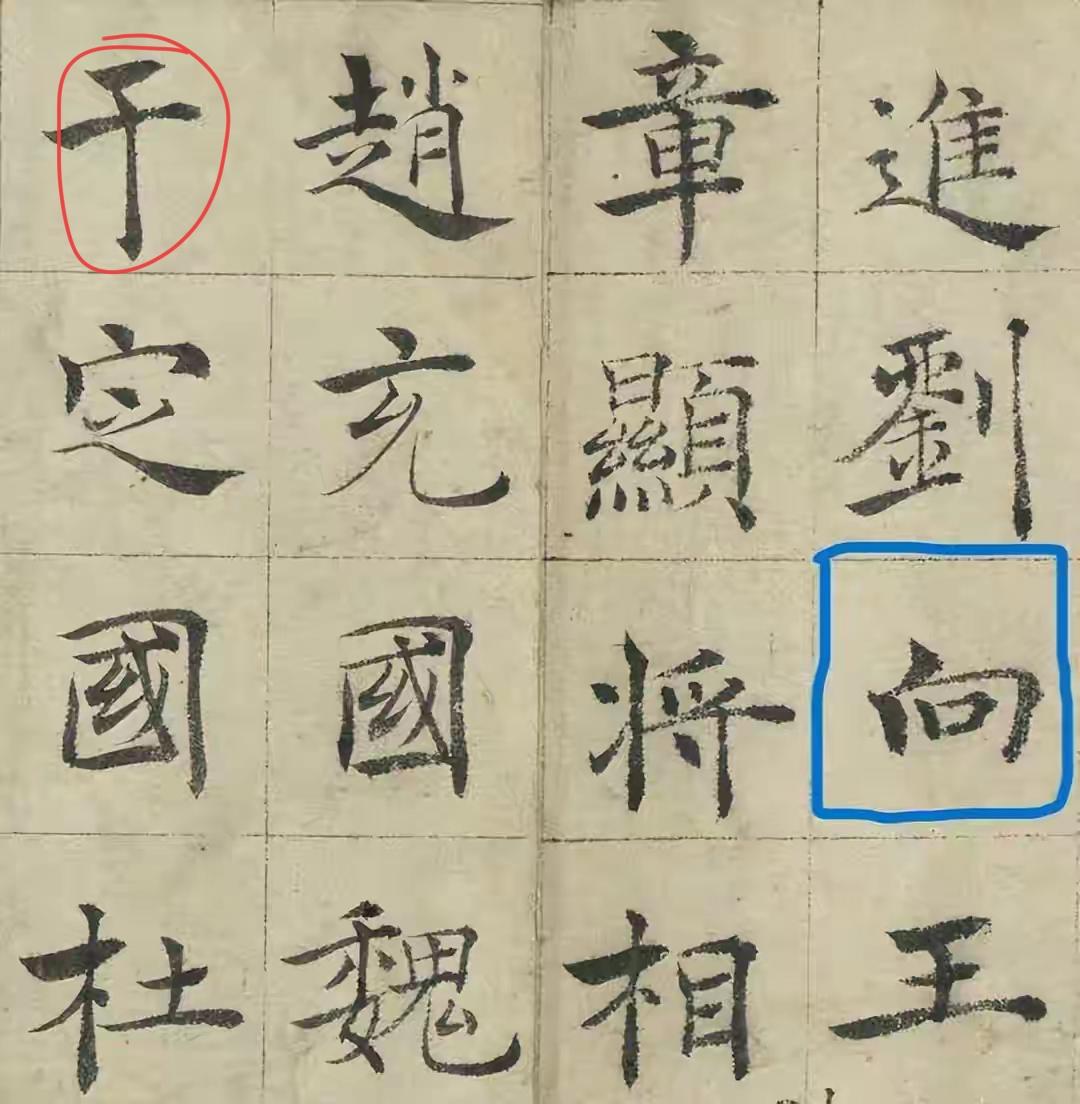 進劉向王
章顯将相
趙充國魏
于定國杜